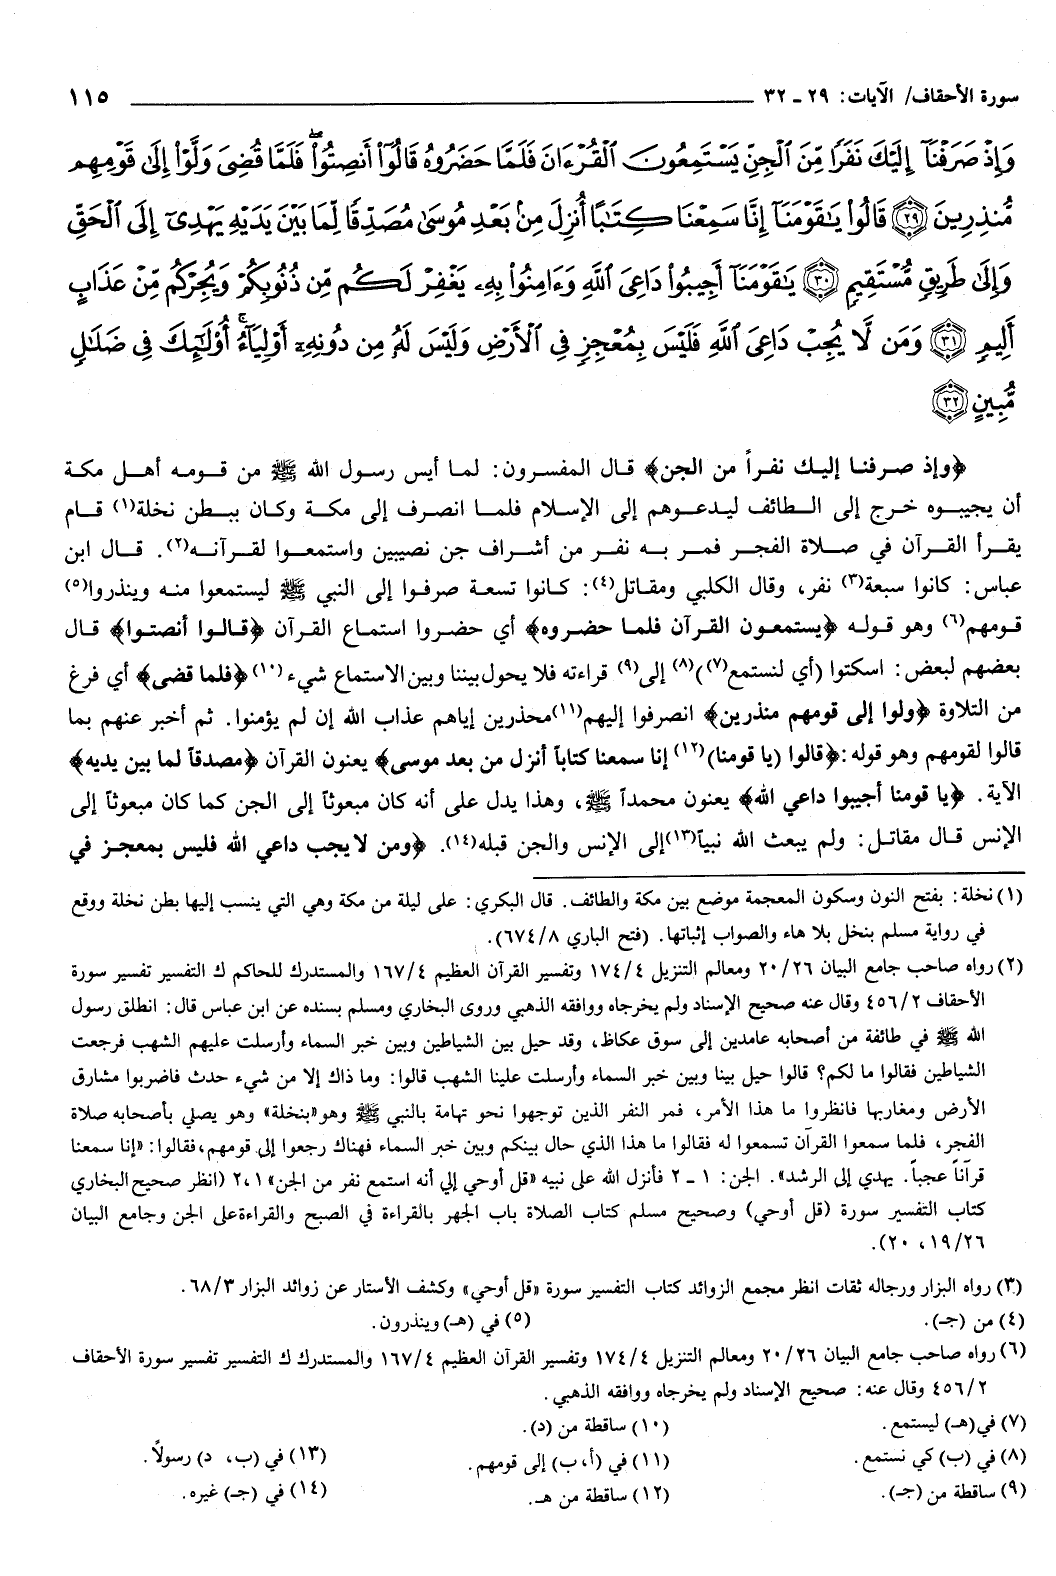 سورة الأحقاف/ الآيات: ٢٩ ـ ٣٢ ١١٥
وَإِذْ صَرَفْنَآ إِلَيْكَ نَفَرًا مِّنَ ٱلْجِنِّ يَسْتَمِعُونَ ٱلْقُرْءَانَ فَلَمَّا حَضَرُوهُ قَالُوٓا۟ أَنصِتُوا۟ ۖ فَلَمَّا قُضِىَ وَلَّوْا۟ إِلَىٰ قَوْمِهِم
مُّنذِرِينَ ﴿٢٩﴾ قَالُوا۟ يَٰقَوْمَنَآ إِنَّا سَمِعْنَا كِتَٰبًا أُنزِلَ مِنۢ بَعْدِ مُوسَىٰ مُصَدِّقًا لِّمَا بَيْنَ يَدَيْهِ يَهْدِىٓ إِلَى ٱلْحَقِّ
وَإِلَىٰ طَرِيقٍ مُّسْتَقِيمٍ ﴿٣٠﴾ يَٰقَوْمَنَآ أَجِيبُوا۟ دَاعِىَ ٱللَّهِ وَءَامِنُوا۟ بِهِۦ يَغْفِرْ لَكُم مِّن ذُنُوبِكُمْ وَيُجِرْكُم مِّنْ عَذَابٍ
أَلِيمٍ ﴿٣١﴾ وَمَن لَّا يُجِبْ دَاعِىَ ٱللَّهِ فَلَيْسَ بِمُعْجِزٍ فِى ٱلْأَرْضِ وَلَيْسَ لَهُۥ مِن دُونِهِۦٓ أَوْلِيَآءُ ۚ أُو۟لَٰٓئِكَ فِى ضَلَٰلٍ
مُّبِينٍ ﴿٣٢﴾
﴿وإذ صرفنا إليك نفراً من الجن﴾ قال المفسرون: لما أيس رسول الله ﷺ من قومه أهل مكة
أن يجيبوه خرج إلى الطائف ليدعوهم إلى الإسلام فلما انصرف إلى مكة وكان ببطن نخلة(١) قام
يقرأ القرآن في صلاة الفجر فمر به نفر من أشراف جن نصيبين واستمعوا لقرآنه(٢). قال ابن
عباس: كانوا سبعة(٣) نفر، وقال الكلبي ومقاتل(٤): كانوا تسعة صرفوا إلى النبي ﷺ ليستمعوا منه وينذروا(٥)
قومهم(٦) وهو قوله ﴿يستمعون القرآن فلما حضروه﴾ أي حضروا استماع القرآن ﴿قالوا أنصتوا﴾ قال
بعضهم لبعض: اسكتوا (أي لنستمع(٧))(٨) إلى(٩) قراءته فلا يحول بيننا وبين الاستماع شيء (١٠)﴿فلما قضى﴾ أي فرغ
من التلاوة ﴿ولوا إلى قومهم منذرين﴾ انصرفوا إليهم(١١)محذرين إياهم عذاب الله إن لم يؤمنوا. ثم أخبر عنهم بما
قالوا لقومهم وهو قوله :﴿قالوا (يا قومنا)(١٢) إنا سمعنا كتاباً أنزل من بعد موسى﴾ يعنون القرآن ﴿مصدقاً لما بين يديه﴾
الآية. ﴿يا قومنا أجيبوا داعي الله﴾ يعنون محمداً ﷺ، وهذا يدل على أنه كان مبعوثاً إلى الجن كما كان مبعوثاً إلى
الإنس قال مقاتل: ولم يبعث الله نبياً(١٣)إلى الإنس والجن قبله(١٤). ﴿ومن لا يجب داعي الله فليس بمعجز في
(١) نخلة: بفتح النون وسكون المعجمة موضع بين مكة والطائف. قال البكري: على ليلة من مكة وهي التي ينسب إليها بطن نخلة ووقع
في رواية مسلم بنخل بلا هاء والصواب إثباتها. (فتح الباري ٦٧٤/٨).
(٢) رواه صاحب جامع البيان ٢٠/٢٦ ومعالم التنزيل ١٧٤/٤ وتفسير القرآن العظيم ١٦٧/٤ والمستدرك للحاكم ك التفسير تفسير سورة
الأحقاف ٤٥٦/٢ وقال عنه صحيح الإسناد ولم يخرجاه ووافقه الذهبي وروى البخاري ومسلم بسنده عن ابن عباس قال: انطلق رسول
الله ﷺ في طائفة من أصحابه عامدين إلى سوق عكاظ، وقد حيل بين الشياطين وبين خبر السماء وأرسلت عليهم الشهب فرجعت
الشياطين فقالوا ما لكم؟ قالوا حيل بينا وبين خبر السماء وأرسلت علينا الشهب قالوا: وما ذاك إلا من شيء حدث فاضربوا مشارق
الأرض ومغاربها فانظروا ما هذا الأمر، فمر النفر الذين توجهوا نحو تهامة بالنبي ﷺ وهو«بنخلة» وهو يصلي بأصحابه صلاة
الفجر، فلما سمعوا القرآن تسمعوا له فقالوا ما هذا الذي حال بينكم وبين خبر السماء فهناك رجعوا إلى قومهم،فقالوا: «إنا سمعنا
قرآناً عجباً. يهدي إلى الرشد». الجن: ١ ـ ٢ فأنزل الله على نبيه «قل أوحي إلي أنه استمع نفر من الجن» ٢،١ (انظر صحيح البخاري
كتاب التفسير سورة (قل أوحي) وصحيح مسلم كتاب الصلاة باب الجهر بالقراءة في الصبح والقراءةعلى الجن وجامع البيان
١٩/٢٦، ٢٠).
(٣) رواه البزار ورجاله ثقات انظر مجمع الزوائد كتاب التفسير سورة «قل أوحي» وكشف الأستار عن زوائد البزار ٦٨/٣.
(٤) من (جـ). (٥) في (هـ) وينذرون.
(٦) رواه صاحب جامع البيان ٢٠/٢٦ ومعالم التنزيل ١٧٤/٤ وتفسير القرآن العظيم ١٦٧/٤ والمستدرك ك التفسير تفسير سورة الأحقاف
٤٥٦/٢ وقال عنه: صحيح الإسناد ولم يخرجاه ووافقه الذهبي.
(٧) في(هـ) ليستمع. (١٠) ساقطة من (د).
(٨) في (ب) كي نستمع. (١١) في (أ،ب) إلى قومهم. (١٣) في (ب، د) رسولاً.
(٩) ساقطة من (جـ). (١٢) ساقطة من هـ. (١٤) في (جـ) غيره.